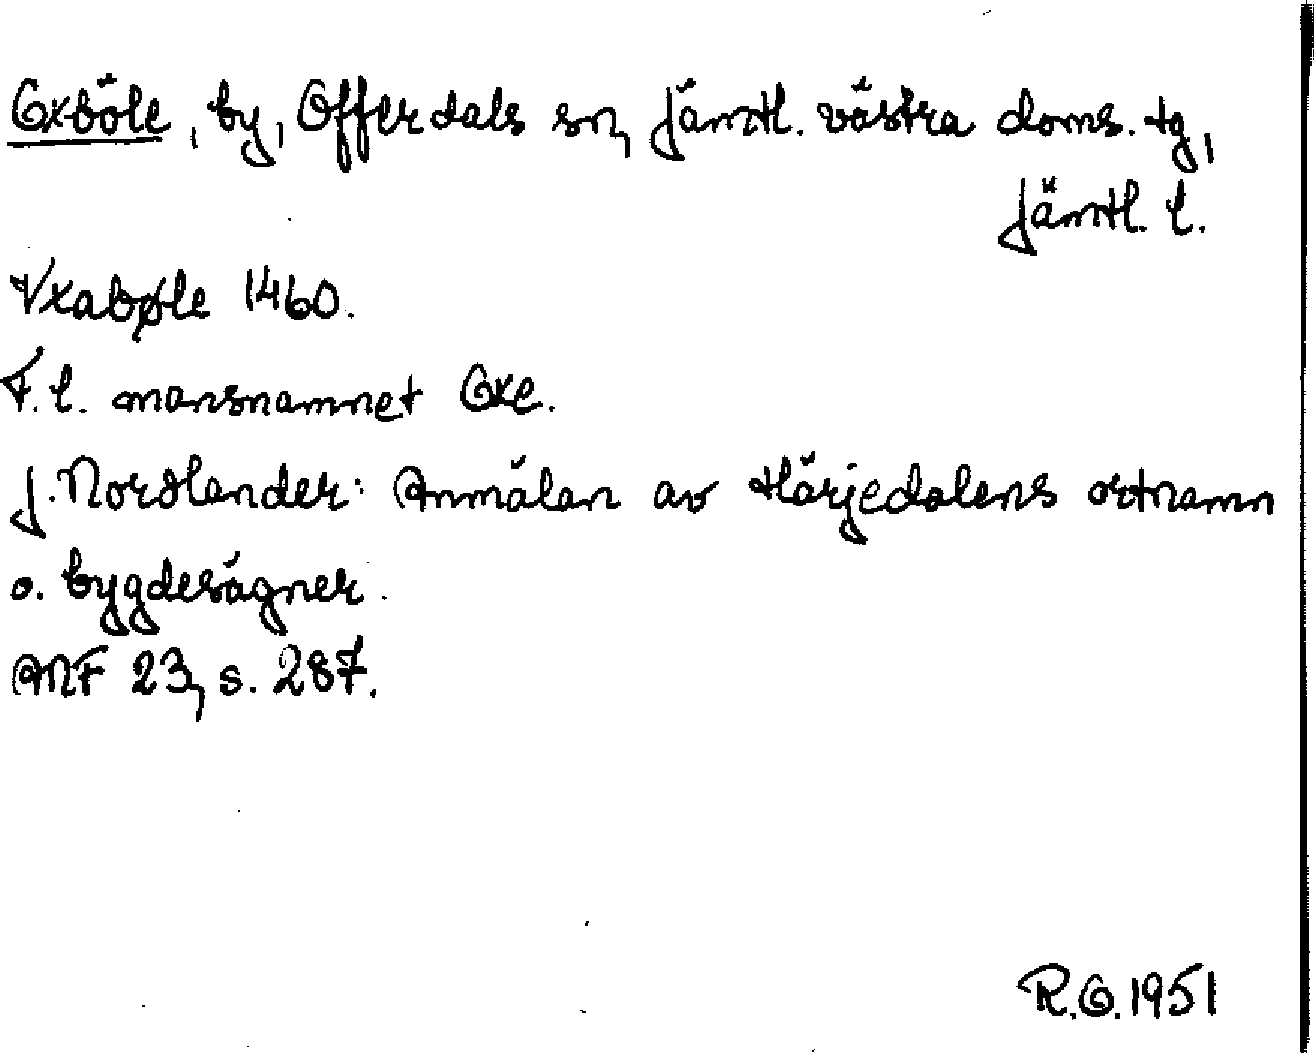 Oxböle, by, Offerdals sn, Jämtl. västra doms. tg,
Jämtl. l.
Vxabøle 1460.
F. l. mansnamnet Oxe.
J. Nordlander: Anmälan av Härjedalens ortnamn
o. bygdesägner.
ANF 23, s. 287.
R.O. 1951